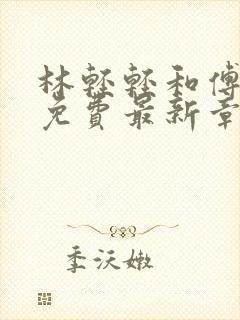 林輕輕和傅
免費最新章
季沃嫩